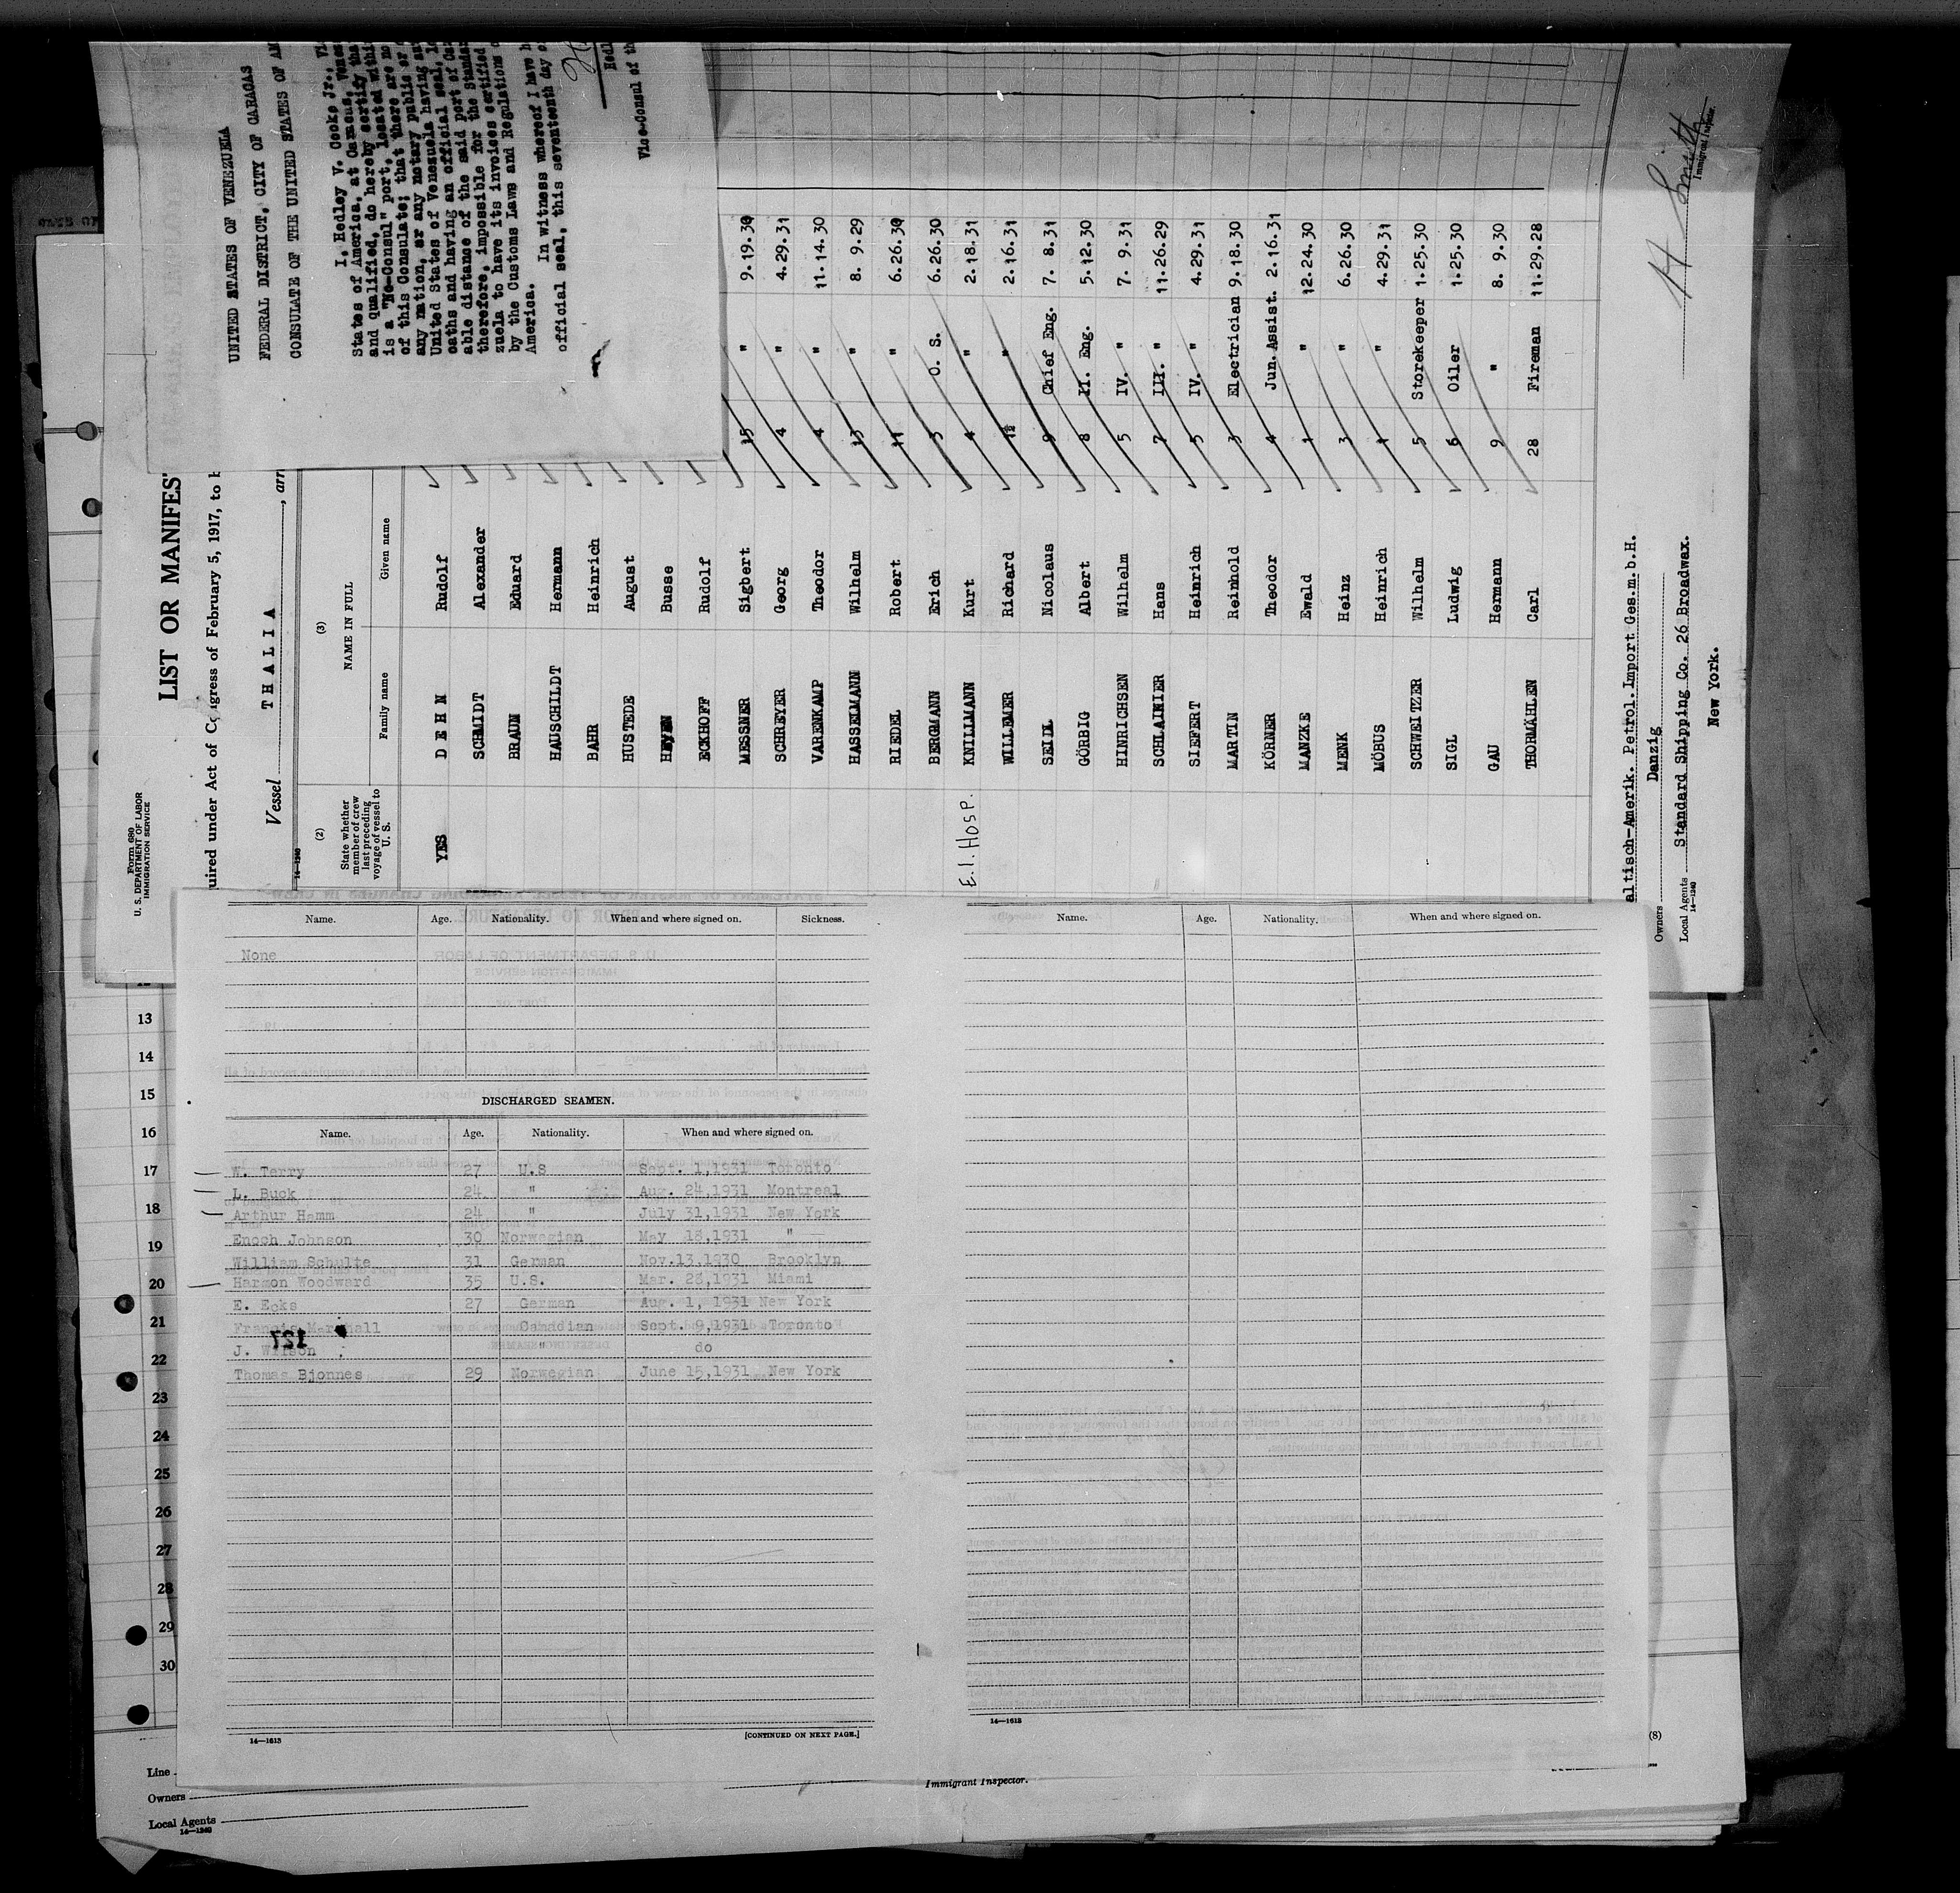 UNITED STATES OF VENEZUELA
FEDERAL DISTRICT, CITY OF CARACAS
CONSULATE OF THE UNITED STATES OF AM
I, Hedley V. Cooke Jr., Vi
States of America, at Caracas, Venez
and qualified, do hereby certify tha
is a "No-Consul" port, located withi
of this Consulate; that there are no
any nation, or any notary public or
United States of Venezuela having au
oaths and having an official seal, lo
able distance of the said port of
therefore, impossible for the Standar
zuela to have its invoices certified
by the Customs Laws and Regulations o
America.
In witness whereof I have h
official seal, this seventeenth day o
Hedl
Vice-Consul of th
Form 680
U. S. DEPARTMENT OF LABOR
IMMIGRATION SERVICE
LIST OR MANIFES
uired under Act of Congress of February 5, 1917, to b
Vessel THALIA, arr
14—1240
(2) (3)
State whether member of crew last preceding voyage of vessel to U. S.
NAME IN FULL
Family name Given name
YES DEHN Rudolf
SCHMIDT Alexander
BRAUN Eduard
HAUSCHILDT Hermann
BAHR Heinrich
HUSTEDE August
HEYEN Busse
ECKHOFF Rudolf
MESSNER Sigbert 15 " 9.19.30
SCHREYER Georg 4 " 4.29.31
VARENKAMP Theodor 4 " 11.14.30
HASSELMANN Wilhelm 13 " 8. 9.29
RIEDEL Robert 11 " 6.26.30
BERGMANN Erich 3 O. S. 6.26.30
E.I. Hosp. KNILLMANN Kurt 4 " 2.18.31
WILLEMER Richard 1½ " 2.16.31
SEIDL Nicolaus 9 Chief Eng. 7. 8.31
GÖRBIG Albert 8 II. Eng. 5.12.30
HINRICHSEN Wilhelm 5 IV. " 7. 9.31
SCHLAINIER Hans 7 III. " 11.26.29
SIEFERT Heinrich 5 IV. " 4.29.31
MARTIN Reinhold 3 Electrician 9.18.30
KÖRNER Theodor 4 Jun. Assist. 2.16.31
MANZKE Ewald 1 " 12.24.30
MENK Heinz 3 " 6.26.30
MÖBUS Heinrich 1 " 4.29.31
SCHWEITZER Wilhelm 5 Storekeeper 1.25.30
SIGL Ludwig 6 Oiler 1.25.30
GAU Hermann 9 " 8. 9.30
THORMÄHLEN Carl 28 Fireman 11.29.28
altisch-Amerik. Petrol. Import Ges.m.b.H.
Owners Danzig
Local Agents Standard Shipping Co. 26 Broadwax.
14—1240
New York.
H Smith
Immigrant Inspector.
Name. Age. Nationality. When and where signed on. Sickness.
None
DISCHARGED SEAMEN.
Name. Age. Nationality. When and where signed on.
W. Terry 27 U.S Sept. 1,1931 Toronto
L. Buck 24 " Aug. 24,1931 Montreal
Arthur Hamm 24 " July 31,1931 New York
Enoch Johnson 30 Norwegian May 18,1931 "
William Schulte 31 German Nov.13,1930 Brooklyn
Harmon Woodward 35 U.S. Mar. 28,1931 Miami
E. Ecks 27 German Aug. 1, 1931 New York
Francis Marshall Canidian Sept. 9,1931 Toronto
J. Wilson " do
Thomas Bjonnes 29 Norwegian June 15,1931 New York
127
14—1613
[CONTINUED ON NEXT PAGE.]
Name. Age. Nationality. When and where signed on.
14—1613
13
14
15
16
17
18
19
20
21
22
23
24
25
26
27
28
29
30
(8)
Line
Owners
Local Agents
14—1240
Immigrant Inspector.